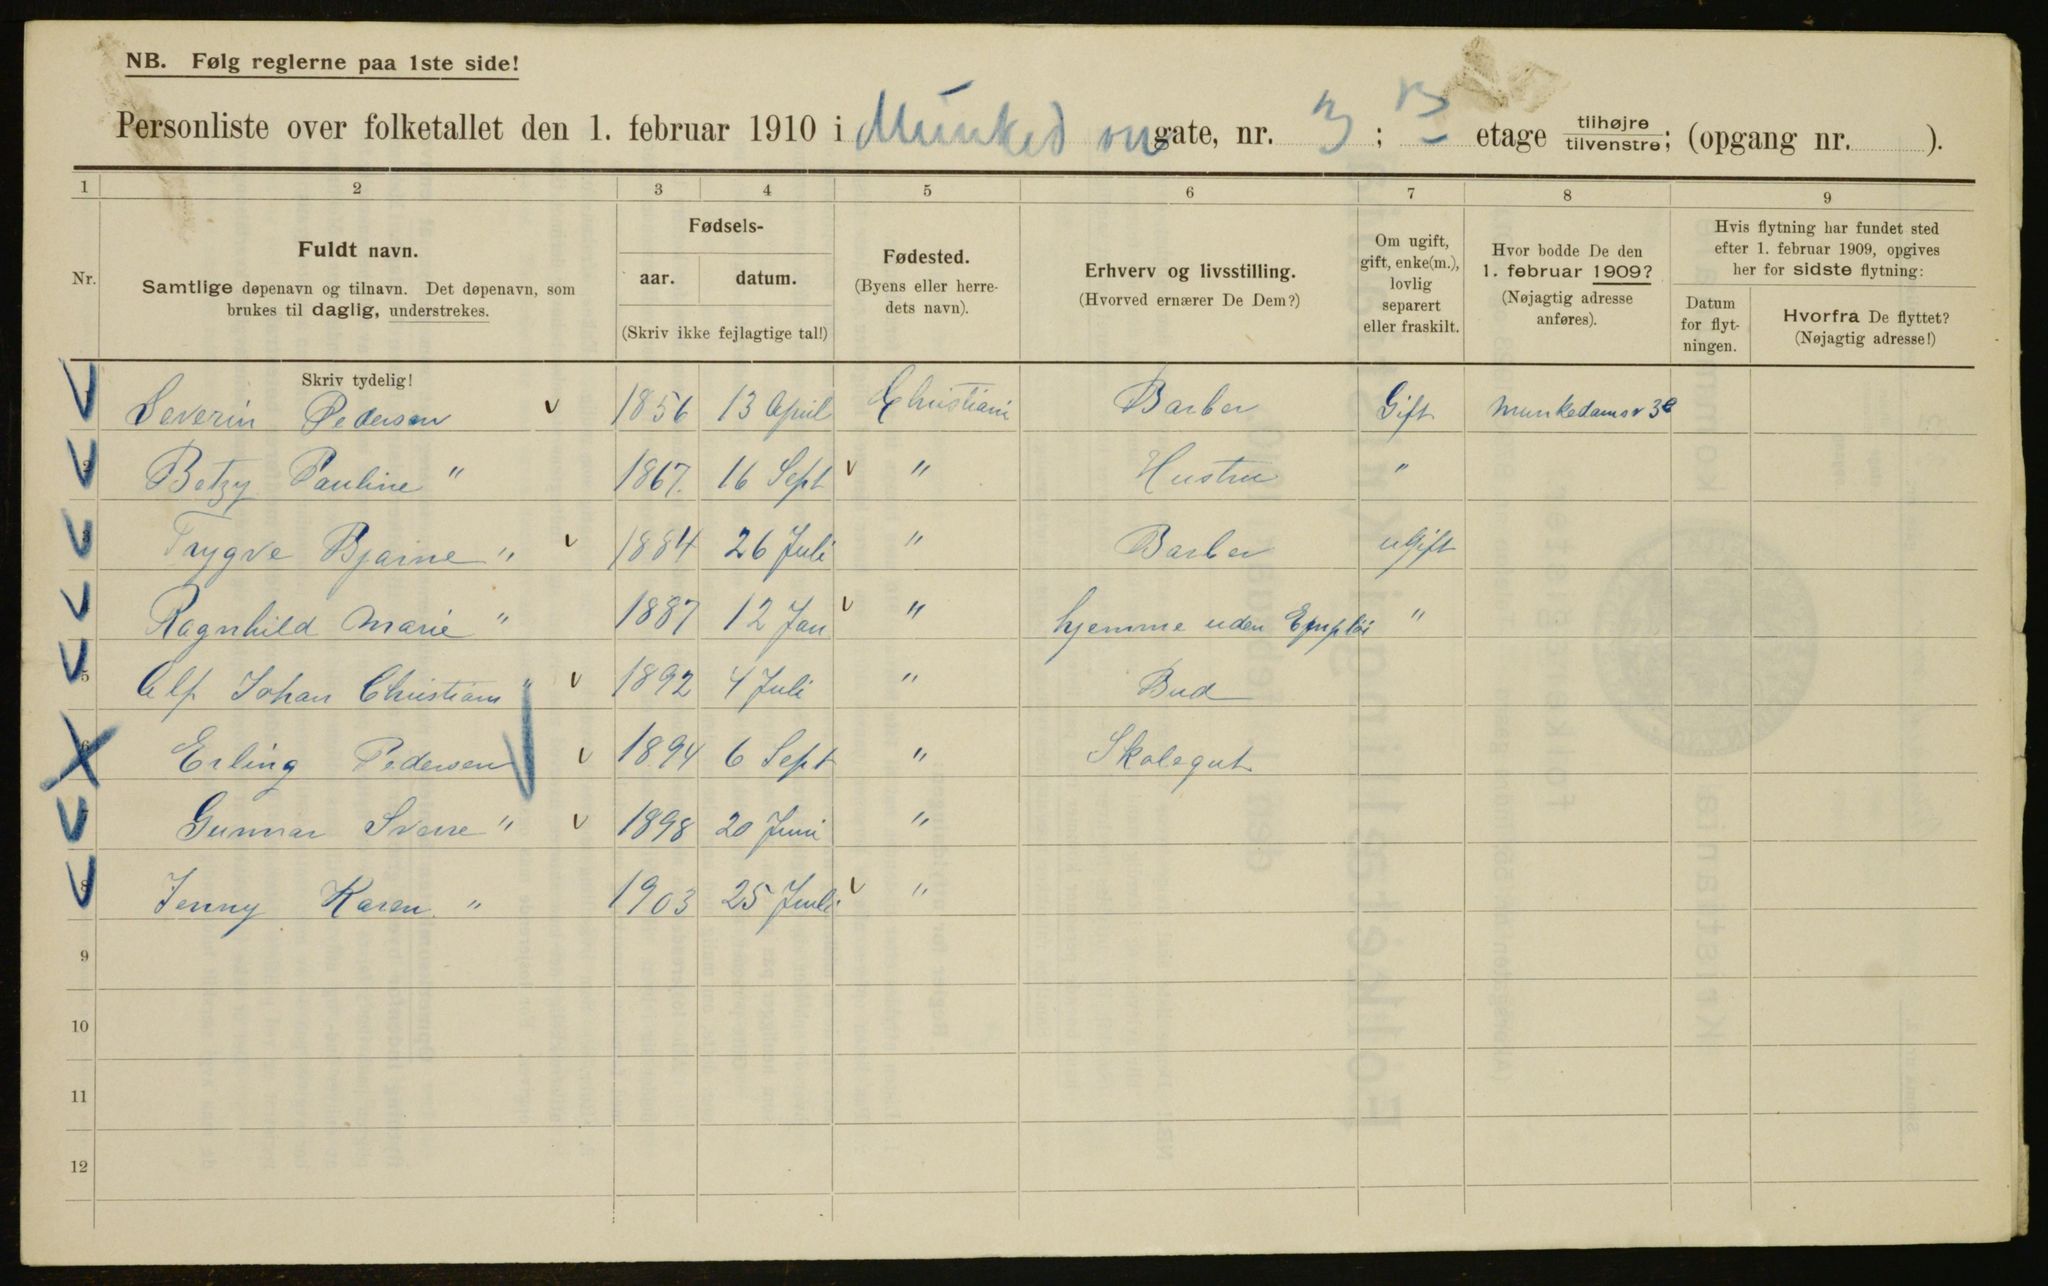 NB. Følg reglerne paa 1ste side!
Personliste over folketallet den 1. februar 1910 i Munked vn gate, nr. 3 ; etage tilhøjre/tilvenstre; (opgang nr. ).
1 2 3 4 5 6 7 8 9
Nr.
Fuldt navn.
Samtlige døpenavn og tilnavn. Det døpenavn, som
brukes til daglig, understrekes.
Fødsels-
aar. datum.
(Skriv ikke fejlagtige tal!)
Fødested.
(Byens eller herre-
dets navn).
Erhverv og livsstilling.
(Hvorved ernærer De Dem?)
Om ugift,
gift, enke(m.),
lovlig
separert
eller fraskilt.
Hvor bodde De den
1. februar 1909?
(Nøjagtig adresse
anføres).
Hvis flytning har fundet sted
efter 1. februar 1909, opgives
her for sidste flytning:
Datum
for flyt-
ningen.
Hvorfra De flyttet?
(Nøjagtig adresse!)
Skriv tydelig!
Severin Pedersen v 1856 13 April Christiani Barber Gift Munkedamsv 3
2 Betzy Pauline " 1867. 16 Sept v " Hustru "
3 Trygve Bjarne " v 1884 26 Juli " Barber ugift
Ragnhild Marie " 1887 12 Jan v " hjemme uden "
5 Alf Johan Christian " v 1892 4 Juli " Bud
6 Erling Pedersen v 1894 6 Sept " Skolegut
7 Gunnar Sverre " v 1898 20 Juni "
8 Jenny Karen. " 1903 25 Juli v "
9
10
11
12